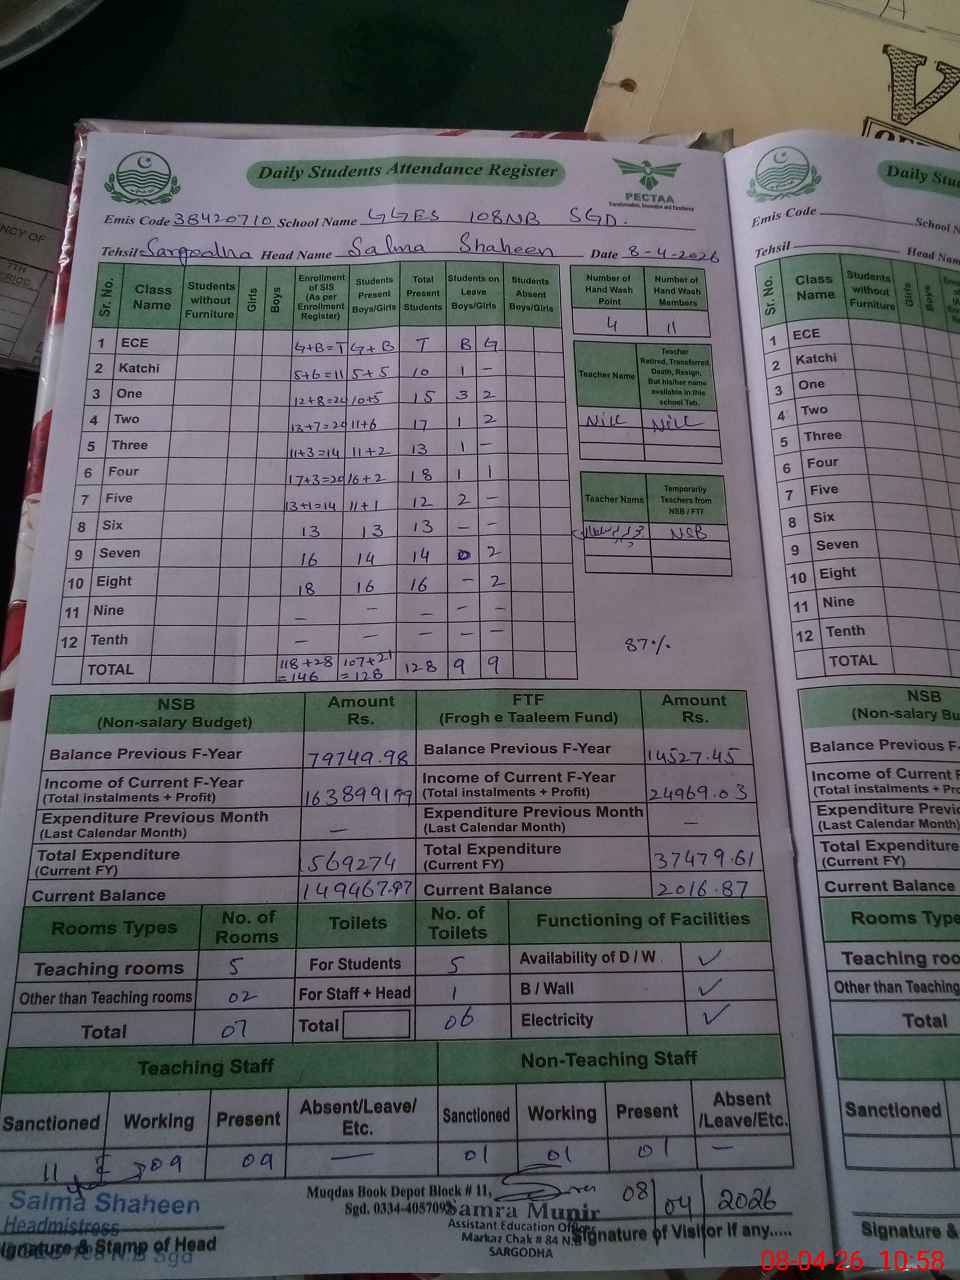 Daily Students Attendance Register
PECTAA
Transformation, Innovation and Excellence
Emis Code 38420710 School Name GGES 108NB SGD.
Tehsil Sargodha Head Name Salma Shaheen Date 8-4-2026
Sr. No. Class Name Students without Furniture Girls Boys Enrollment of SIS (As per Enrollment Register) Students Present Boys/Girls Total Present Students Students on Leave Boys/Girls Students Absent Boys/Girls
1 ECE G+B=T G+B T B G
2 Katchi 5+6=11 5+5 10 1 -
3 One 12+8=20 10+5 15 3 2
4 Two 13+7=20 11+6 17 1 2
5 Three 11+3=14 11+2 13 1 -
6 Four 17+3=20 16+2 18 1 1
7 Five 13+1=14 11+1 12 2 -
8 Six 13 13 13 - -
9 Seven 16 14 14 0 2
10 Eight 18 16 16 - 2
11 Nine - - - - -
12 Tenth - - - - -
TOTAL 118+28=146 107+21=128 128 9 9
Number of Hand Wash Point Number of Hand Wash Members
4 11
Teacher Name Teacher Retired, Transferred, Death, Resign, But his/her name available in this school Tab.
Nill Nill
Teacher Name Temporarily Teachers from NSB / FTF
NSB
87%
NSB (Non-salary Budget) Amount Rs. FTF (Frogh e Taaleem Fund) Amount Rs.
Balance Previous F-Year 79749.98 Balance Previous F-Year 14527.45
Income of Current F-Year (Total instalments + Profit) 1638991.99 Income of Current F-Year (Total instalments + Profit) 24969.03
Expenditure Previous Month (Last Calendar Month) - Expenditure Previous Month (Last Calendar Month) -
Total Expenditure (Current FY) 1569274 Total Expenditure (Current FY) 37479.61
Current Balance 149467.97 Current Balance 2016.87
Rooms Types No. of Rooms Toilets No. of Toilets Functioning of Facilities
Teaching rooms 5 For Students 5 Availability of D / W ✓
Other than Teaching rooms 02 For Staff + Head 1 B / Wall ✓
Total 07 Total 06 Electricity ✓
Teaching Staff Non-Teaching Staff
Sanctioned Working Present Absent/Leave/Etc. Sanctioned Working Present Absent/Leave/Etc.
11 09 09 - 01 01 01 -
Salma Shaheen
Headmistress
Signature & Stamp of Head
Muqdas Book Depot Block # 11,
Sgd. 0334-4057092
Samra Munir
Assistant Education Officer
Markaz Chak # 84 N.B
SARGODHA
08/04/2026
Signature of Visitor If any.....
Daily Stu
Emis Code School N
Tehsil Head Name
Sr. No. Class Name Students without Furniture Girls Boys
1 ECE
2 Katchi
3 One
4 Two
5 Three
6 Four
7 Five
8 Six
9 Seven
10 Eight
11 Nine
12 Tenth
TOTAL
NSB
(Non-salary Budg
Balance Previous F-
Income of Current F
(Total instalments + Pro
Expenditure Previo
(Last Calendar Month)
Total Expenditure
(Current FY)
Current Balance
Rooms Type
Teaching roo
Other than Teaching
Total
Sanctioned
Signature &
08-04-26 10:58